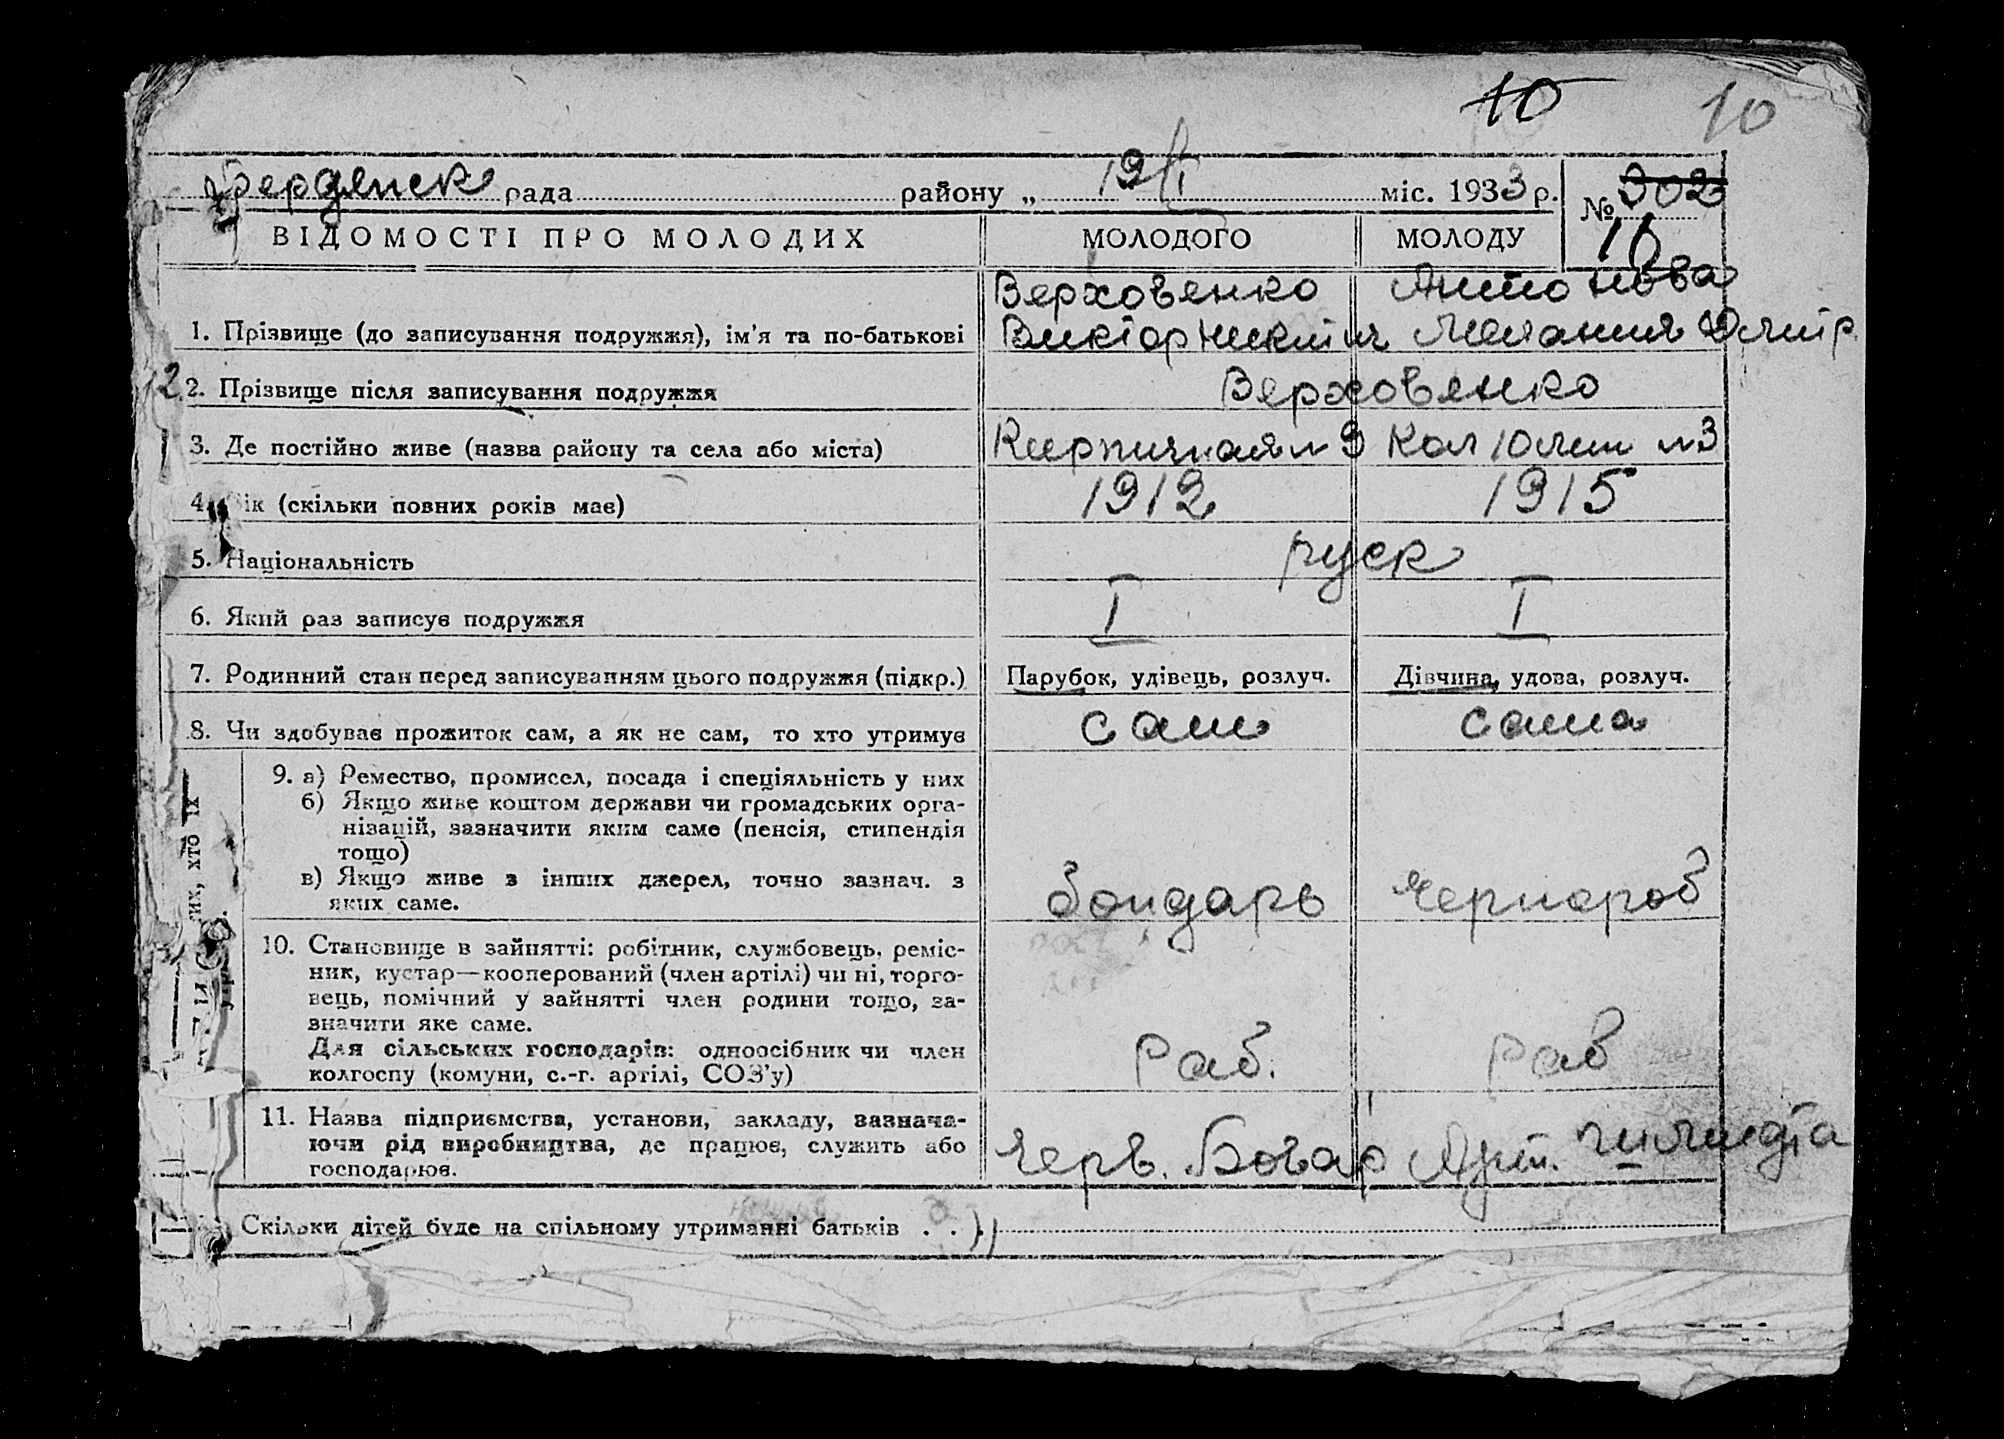 10 10
Бердянск рада району „ 19/I міс. 1933 р. № 302
10
ВІДОМОСТІ ПРО МОЛОДИХ МОЛОДОГО МОЛОДУ
Верховенко Антонова
1. Прізвище (до записування подружжя), ім'я та по-батькові Виктор Никит Мелания Дмитр.
2. Прізвище після записування подружжя Верховенко
3. Де постійно живе (назва району та села або міста) Кирпичная № 9 Кол 10 лет № 3
4. Вік (скільки повних років має) 1912 1915
5. Національність руск
6. Який раз записує подружжя I I
7. Родинний стан перед записуванням цього подружжя (підкр.) Парубок, удівець, розлуч. Дівчина, удова, розлуч.
8. Чи здобуває прожиток сам, а як не сам, то хто утримує сам сама
9. а) Ремество, промисел, посада і спеціяльність у них
б) Якщо живе коштом держави чи громадських орга-
нізацій, зазначити яким саме (пенсія, стипендія
тощо)
в) Якщо живе з інших джерел, точно зазнач. з
яких саме. бондарь чернороб
10. Становище в зайнятті: робітник, службовець, реміс-
ник, кустар—кооперований (член артілі) чи ні, торго-
вець, помічний у зайнятті член родини тощо, за-
значити яке саме.
Для сільських господарів: одноосібник чи член
колгоспу (комуни, с.-г. артілі, СОЗ'у) Раб. Раб
11. Назва підприємства, установи, закладу, зазнача-
ючи рід виробництва, де працює, служить або
господарює. Черв. Бовар Арт.
Скільки дітей буде на спільному утриманні батьків . .